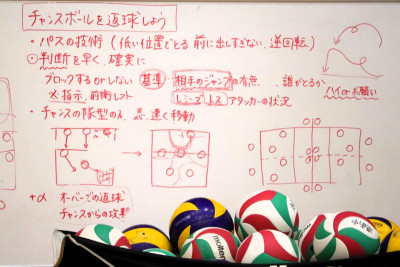 チャンスボールを返球しよう
・パスの技術（低い位置でとる 前に出しすぎない、逆回転）
・判断を早く、確実に
ブロックするorしない 基準 相手のジャンプの有無、誰がとるか
※指示、前衛レフト レシーブ トス アタッカーの状況 ハイorお願い
・チャンスの隊型のみ、速く移動
+α オーバーでの返球
チャンスからの攻撃
molten